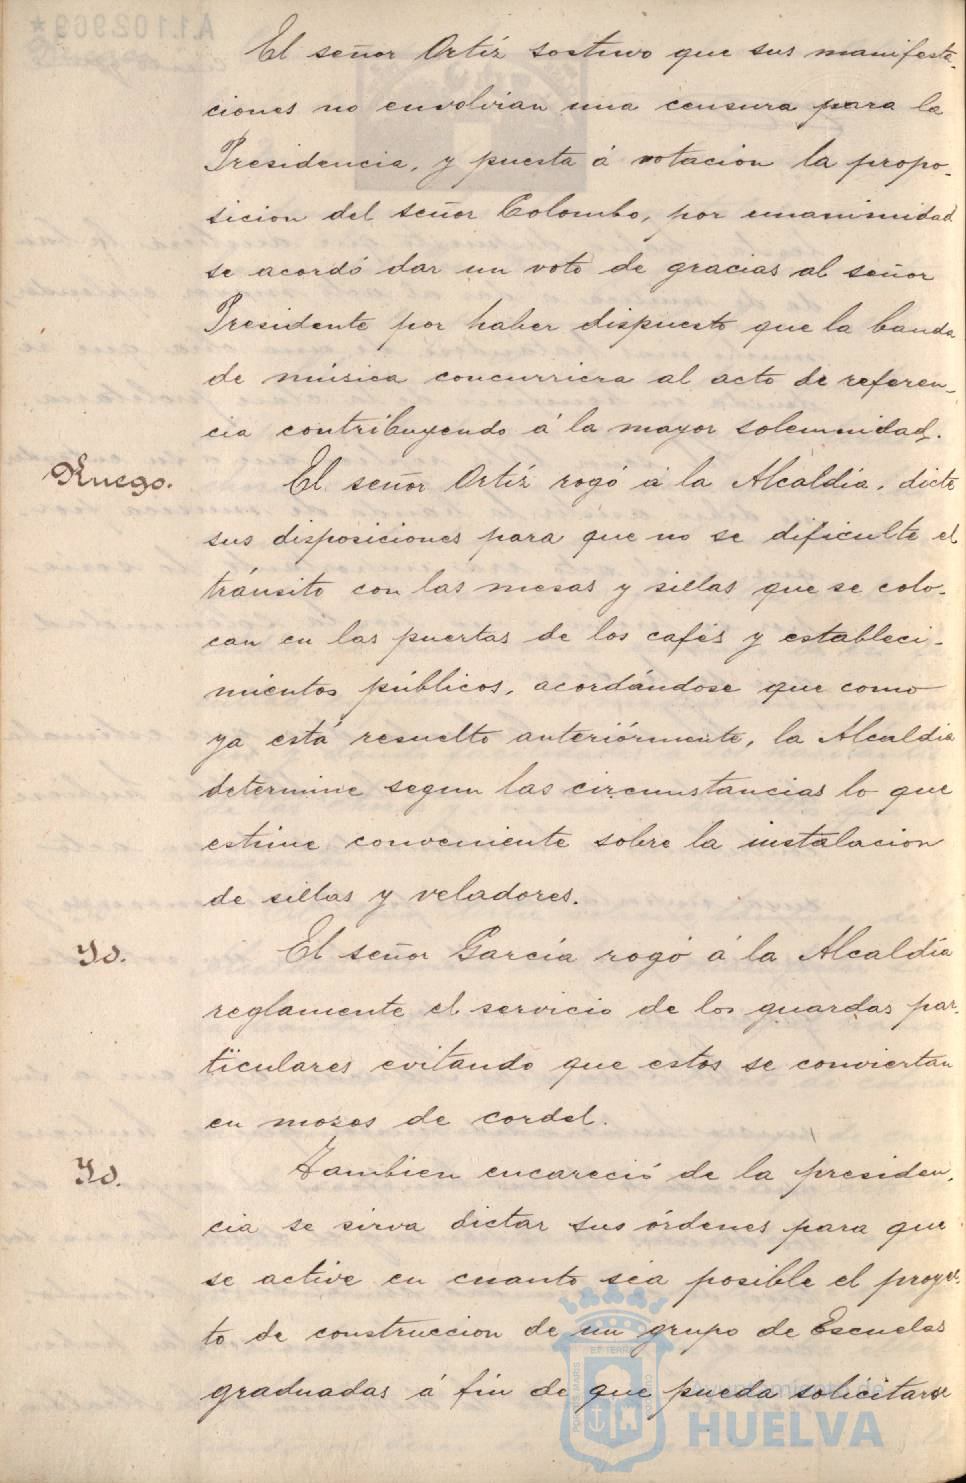 El señor Ortíz sostuvo que sus manifesta-
ciones no envolvian una censura para la
Presidencia, y puesta á votacion la propo-
sicion del señor Colombo, por unanimidad
se acordó dar un voto de gracias al señor
Presidente por haber dispuesto que la banda
de música concurriera al acto de referen-
cia contribuyendo á la mayor solemnidad.
Ruego.
El señor Ortíz rogó á la Alcaldía, dicte
sus disposiciones para que no se dificulte el
tránsito con las mesas y sillas que se colo-
can en las puertas de los cafés y estableci-
mientos públicos, acordándose que como
ya está resuelto anteriórmente, la Alcaldia
determine segun las circunstancias lo que
estime conveniente sobre la instalacion
de sillas y veladores.
Yd.
El señor García rogó á la Alcaldía
reglamente el servicio de los guardas par-
ticulares evitando que estos se conviertan
en mozos de cordel.
Yd.
Tambien encareció de la presiden-
cia se sirva dictar sus órdenes para que
se active en cuanto sea posible el proyec-
to de construccion de un grupo de Escuelas
graduadas á fin de que pueda solicitarse
A1102969*
Ayuntamiento de
HUELVA